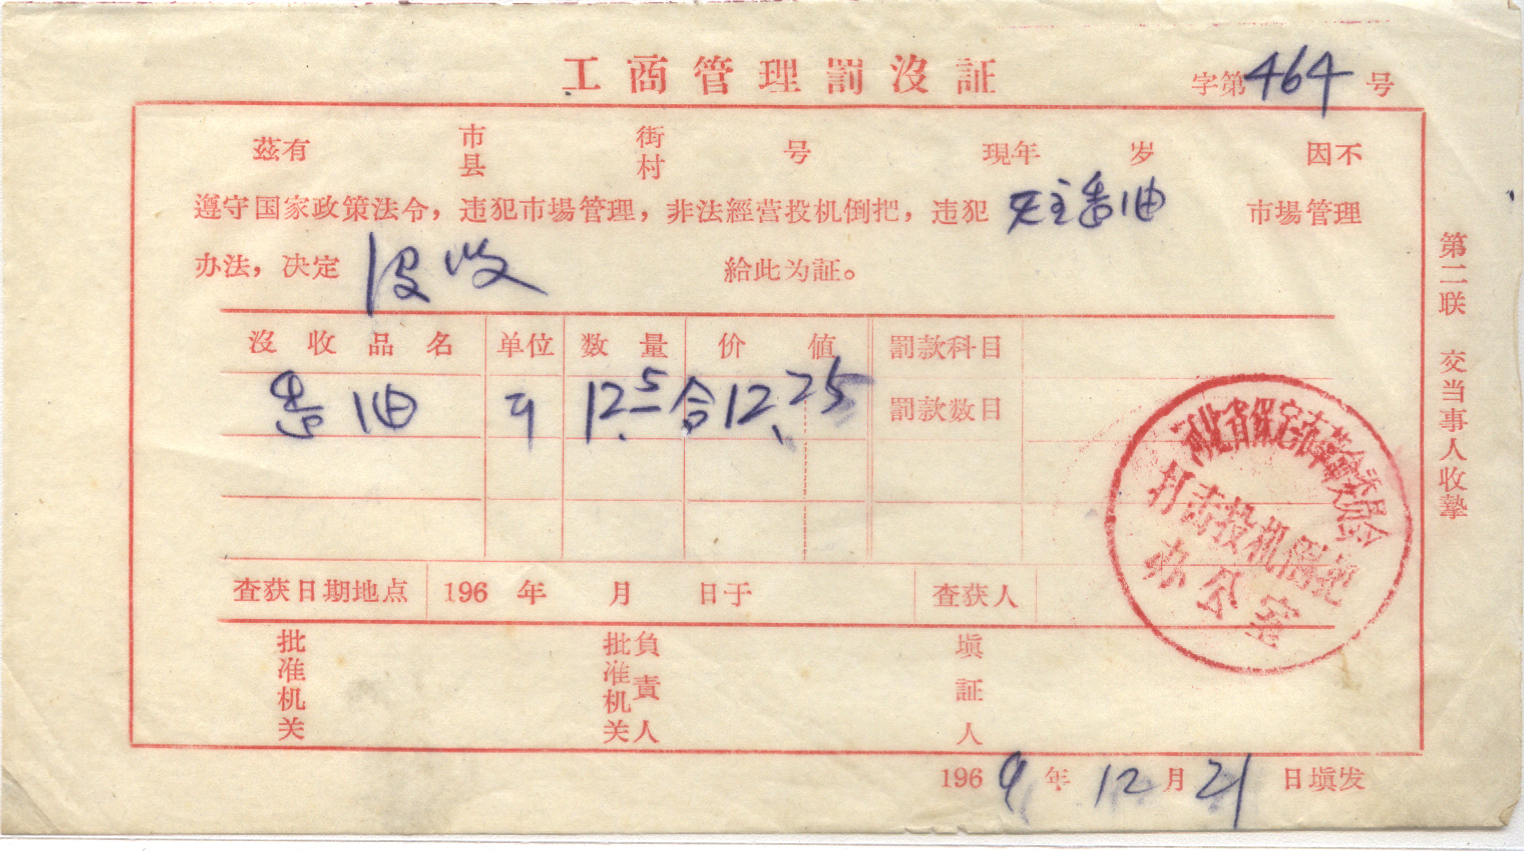 工商管理罰沒証
字第464号
茲有 市县 街村 号 現年 岁 因不
遵守国家政策法令，违犯市場管理，非法經营投机倒把，违犯 市場管理
办法，决定 没收 給此为証。
沒收品名 单位 数量 价値 罰款科目
油 12.5 合12.25 罰款数目
查获日期地点 196 年 月 日于 查获人
批准机关 批准机关負責人 塡証人
1969年12月21日塡发
第二联 交当事人收摯
河北省保定市革命委員会
打击投机倒把
办公室